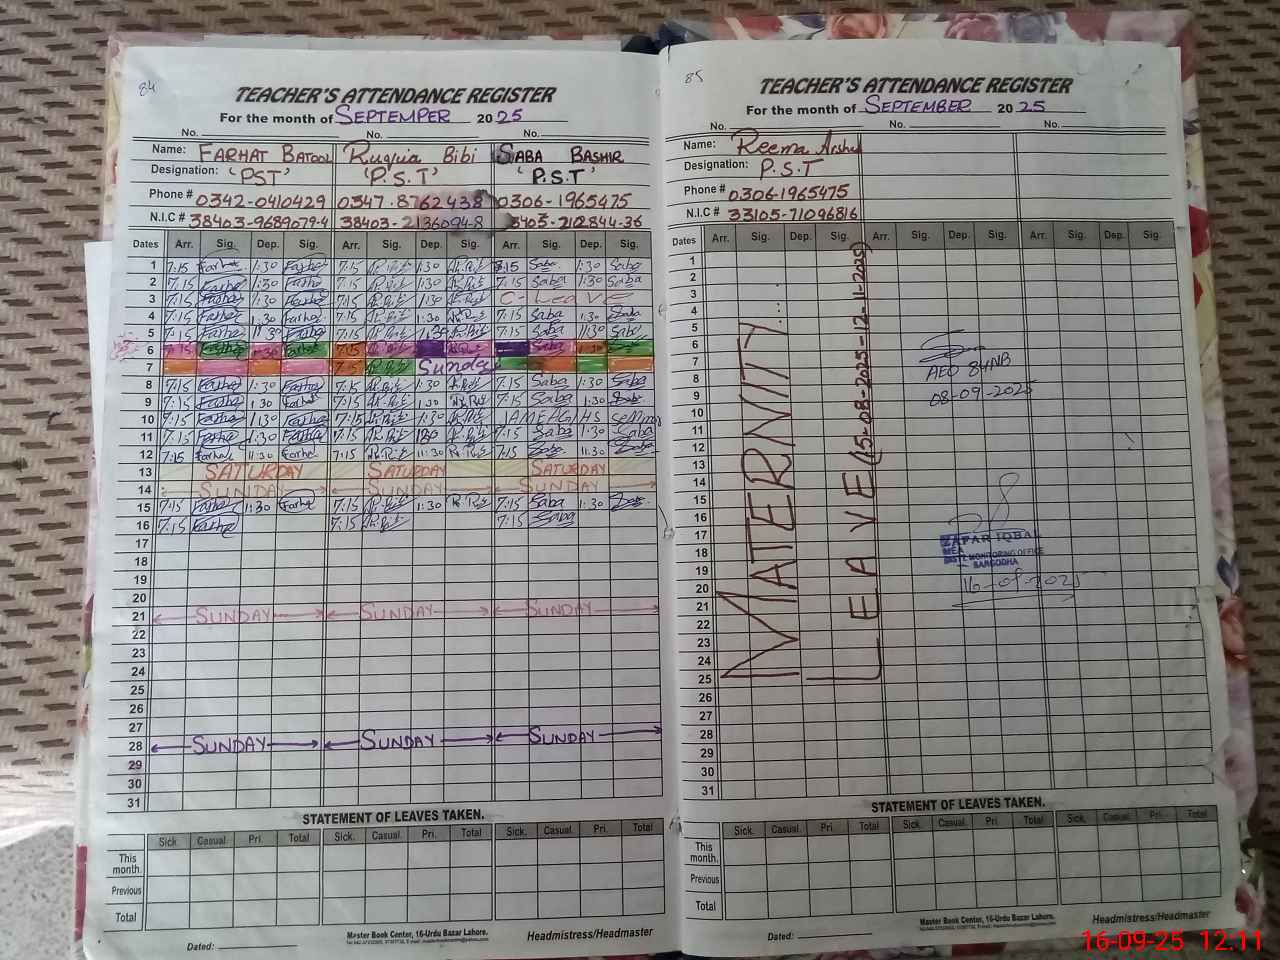 84
TEACHER'S ATTENDANCE REGISTER
For the month of SEPTEMPER 2025
No. No. No.
Name: FARHAT BATOOL Ruqyia Bibi SABA BASHIR
Designation: 'PST' 'P.S.T' 'P.S.T'
Phone # 0342-0410429 0347-8762438 0306-1965475
N.I.C # 38403-9689079-4 38403-2136094-8 38403-212844-36
Dates Arr. Sig. Dep. Sig. Arr. Sig. Dep. Sig. Arr. Sig. Dep. Sig.
1 7:15 Farhat 1:30 Farha 7:15 1:30 7:15 Saba 1:30 Saba
2 7:15 Farha 1:30 Farha 7:15 1:30 7:15 Saba 1:30 Saba
3 7:15 Farha 1:30 Farha 7:15 1:30 C-Leave
4 7:15 Farha 1:30 Farha 7:15 1:30 7:15 Saba 1:30 Saba
5 7:15 Farha 11:30 Farha 7:15 11:30 7:15 Saba 11:30 Saba
6 7:15 Farha 1:30 Farha 7:15 Saba 1:30
7 7:15 Sunday
8 7:15 Farha 1:30 Farha 7:15 1:30 7:15 Saba 1:30 Saba
9 7:15 Farha 1:30 Farha 7:15 1:30 7:15 Saba 1:30 Saba
10 7:15 Farha 1:30 Farha 7:15 1:30
11 7:15 Farha 1:30 Farha 7:15 1:30 7:15 Saba 1:30 Saba
12 7:15 Farha 11:30 Farha 7:15 11:30 7:15 Saba 11:30 Saba
13 SATURDAY SATURDAY SATURDAY
14 SUNDAY SUNDAY SUNDAY
15 7:15 Farha 1:30 Farha 7:15 1:30 7:15 Saba 1:30 Saba
16 7:15 Farha 7:15 7:15 Saba
17
18
19
20
21 SUNDAY SUNDAY SUNDAY
22
23
24
25
26
27
28 SUNDAY SUNDAY SUNDAY
29
30
31
STATEMENT OF LEAVES TAKEN.
Sick. Casual. Pri. Total Sick. Casual. Pri. Total Sick. Casual. Pri. Total
This month.
Previous
Total
Master Book Center, 16-Urdu Bazar Lahore.
Dated: Headmistress/Headmaster
85
TEACHER'S ATTENDANCE REGISTER
For the month of SEPTEMBER 2025
No. No. No.
Name: Reema Arshad
Designation: P.S.T
Phone # 0306-1965475
N.I.C # 33105-71096816
Dates Arr. Sig. Dep. Sig. Arr. Sig. Dep. Sig. Arr. Sig. Dep. Sig.
1
2
3
4
5
6
7
8
9
10
11
12
13
14
15
16
17
18
19
20
21
22
23
24
25
26
27
28
29
30
31
MATERNITY
LEAVE (15-08-2025-12-11-2025)
AEO 84NB
08-09-2025
ZAFAR IQBAL
MEA
DISTT. MONITORING OFFICE
SARGODHA
16-09-2025
STATEMENT OF LEAVES TAKEN.
Sick. Casual. Pri. Total Sick. Casual. Pri. Total Sick. Casual. Pri. Total
This month.
Previous
Total
Master Book Center, 16-Urdu Bazar Lahore.
Dated: Headmistress/Headmaster
16-09-25 12:11